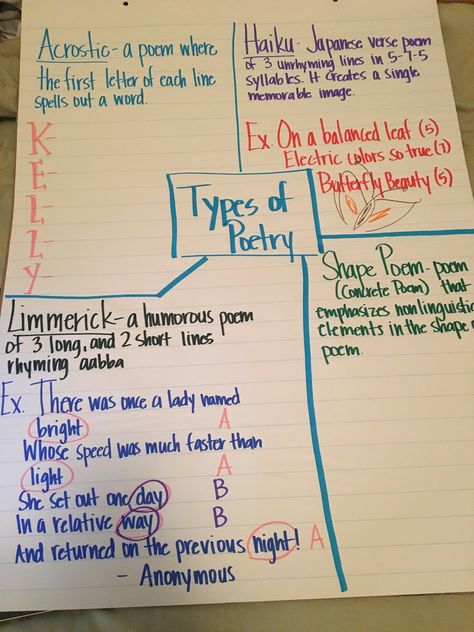 Acrostic - a poem where
the first letter of each line
spells out a word.
K-
E-
L-
L-
Y-
Haiku - Japanese verse poem
of 3 unrhyming lines in 5-7-5
syllables. It creates a single
memorable image.
Ex. On a balanced leaf (5)
Electric colors so true (7)
Butterfly Beauty (5)
Types of
Poetry
Limmerick - a humorous poem
of 3 long, and 2 short lines
rhyming aabba
Ex. There was once a lady named
bright A
Whose speed was much faster than
light A
She set out one day B
In a relative way B
And returned on the previous night! A
- Anonymous
Shape Poem - poem
(Concrete Poem) that
emphasizes nonlinguistic
elements in the shape
poem.